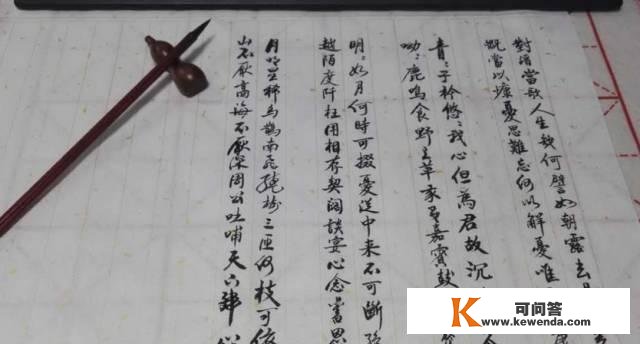 對酒當歌人生幾何譬如朝露去日
慨當以慷憂思難忘何以解憂唯
青〻子衿悠〻我心但為君故沉
呦〻鹿鳴食野之苹我有嘉賓鼓
明〻如月何時可掇憂從中来不可斷
越陌度阡枉用相存契闊談宴心念舊恩
月明星稀烏鵲南飛繞樹三匝何枝可依
山不厭高海不厭深周公吐哺天下歸心
K 可问答
www.kewenda.com